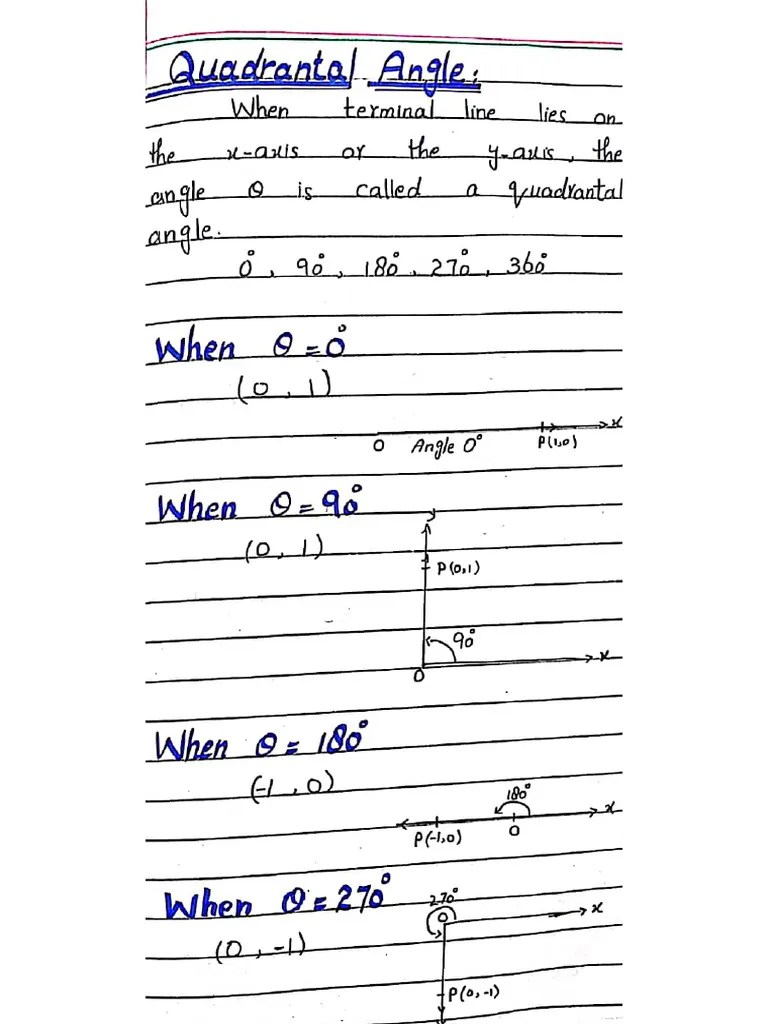 Quadrantal Angle:
When terminal line lies on
the x-axis or the y-axis, the
angle θ is called a quadrantal
angle.
0°, 90°, 180°, 270°, 360°
When θ = 0°
(0, 1)
O Angle 0° P(1,0) x
When θ = 90°
(0, 1)
P(0,1)
90°
x
O
When θ = 180°
(-1, 0)
180°
x
P(-1,0) O
When θ = 270°
270°
O x
(0, -1)
P(0,-1)